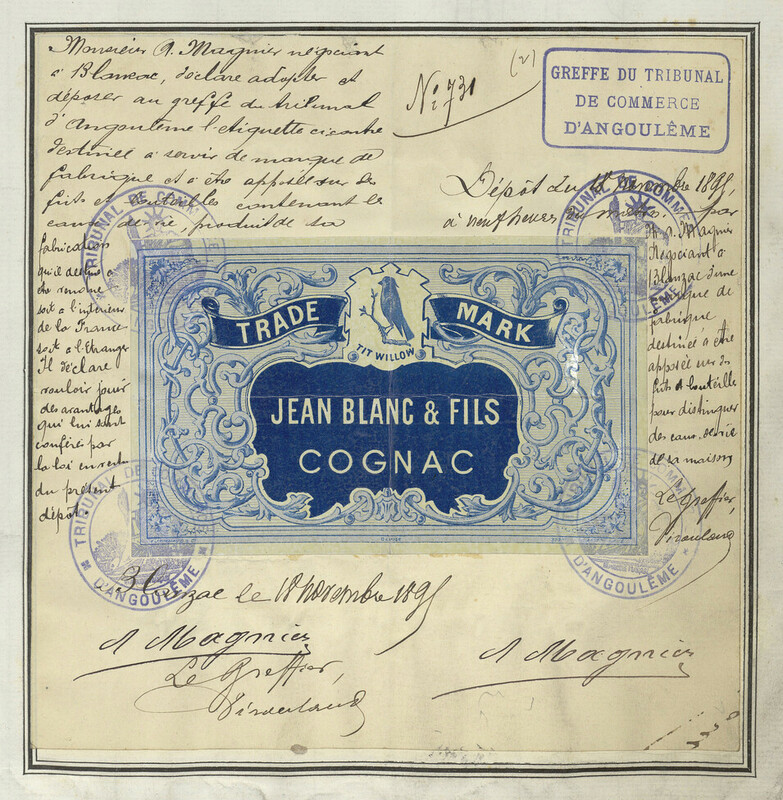 Monsieur A. Magnier négociant
à Blanzac, déclare adopter et
déposer au greffe du tribunal
d'Angoulême l'etiquette ci contre
destinée à servir de marque de
fabrique et à être apposée sur les
fûts et bouteilles contenant les
eaux de vie, produit de sa
fabrication
qu'il destine à
être vendue
soit à l'intérieur
de la France
soit à l'Etranger
Il déclare
vouloir jouir
des avantages
qui lui sont
conférés par
la loi en vertu
du présent
dépôt.
(2)
No 731
GREFFE DU TRIBUNAL
DE COMMERCE
D'ANGOULÊME
Dépôt du novembre 1895,
à neuf heures du matin, par
Mr A. Magnier
Négociant à
Blanzac d'une
marque de
fabrique
destinée à être
apposée sur les
fûts & bouteilles
pour distinguer
des eaux-de-vie
de sa maison
Le Greffier,
TRIBUNAL DE COMMERCE
D'ANGOULÊME
TRADE MARK
TIT WILLOW
JEAN BLANC & FILS
COGNAC
TRIBUNAL DE COMMERCE
D'ANGOULÊME
TRIBUNAL DE COMMERCE
D'ANGOULÊME
Blanzac le 18 novembre 1895
A Magnier
Le Greffier,
A Magnier